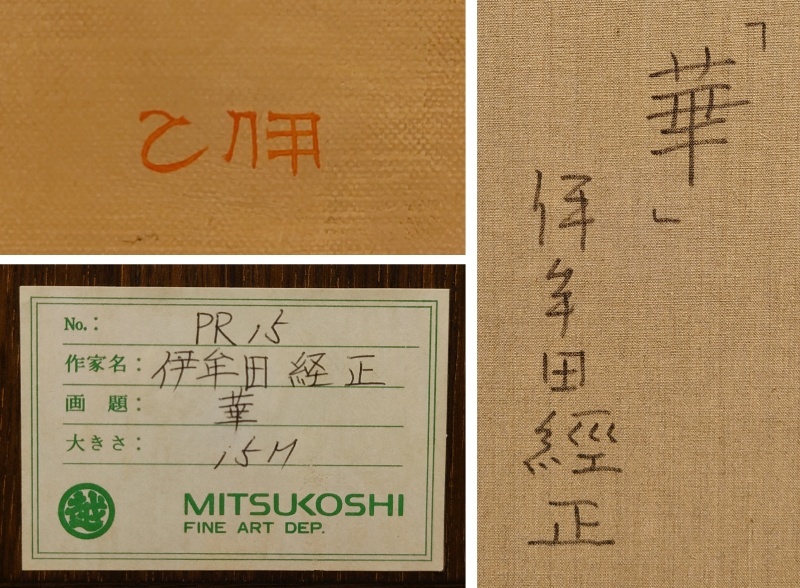 乙伊
No.: PR 15
作家名: 伊牟田 経正
画 題: 華
大きさ: 15M
越
MITSUKOSHI
FINE ART DEP.
「華」
伊牟田經正